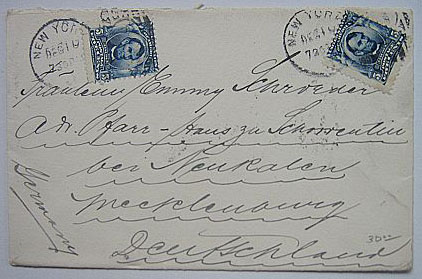 NEW YORK
DEC 10
NEW YORK
DEC 10
Fräulein Emmy Schroeder
Adr. Pfarr-Haus zu Schorrentin
bei Neukalen
Mecklenburg
Deutschland
Germany